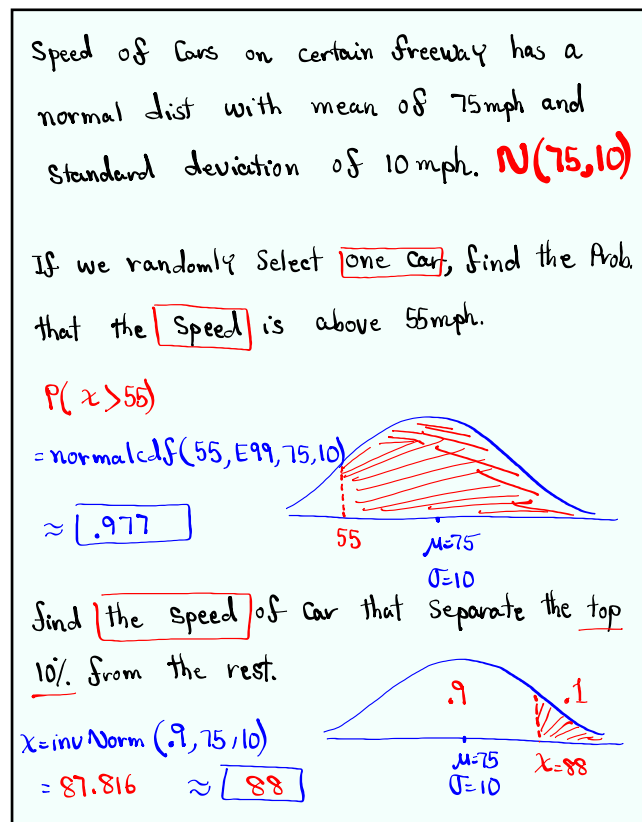 Speed of Cars on certain freeway has a
normal dist with mean of 75mph and
Standard deviation of 10 mph. N(75,10)
If we randomly Select one car, find the Prob.
that the Speed is above 55mph.
P(x>55)
=normalcdf(55,E99,75,10)
≈ .977
55
μ=75
σ=10
find the speed of car that separate the top
10% from the rest.
.9 .1
x=invNorm (.9,75,10)
= 87.816 ≈ 88
μ=75
σ=10
x=88